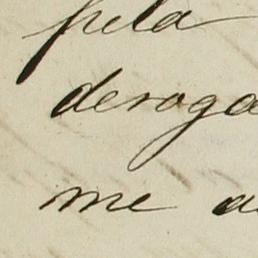 pela
deroga
me a